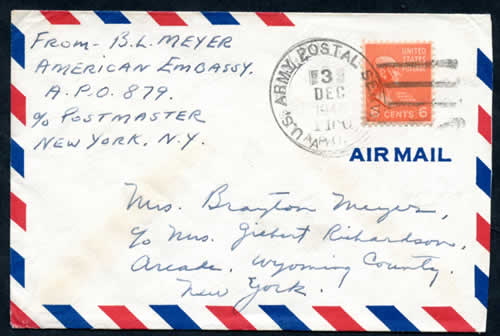 FROM- B.L. MEYER
AMERICAN EMBASSY.
A.P.O. 879.
c/o POSTMASTER
NEW YORK, N.Y.
U.S. ARMY POSTAL
3
DEC
UNITED STATES
6 CENTS 6
AIR MAIL
Mrs. Brayton Meyer,
c/o Mrs. Gilbert Richardson,
Arcade, Wyoming County,
New York.